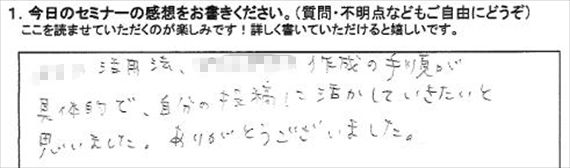 1. 今日のセミナーの感想をお書きください。(質問・不明点などもご自由にどうぞ)
ここを読ませていただくのが楽しみです！詳しく書いていただけると嬉しいです。
活用法、作成の手順が
具体的で、自分の投稿に活かしていきたいと
思いました。ありがとうございました。